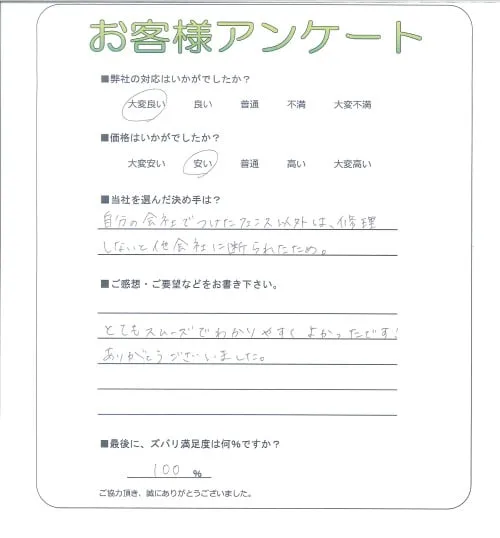 お客様アンケート
■弊社の対応はいかがでしたか？
大変良い 良い 普通 不満 大変不満
■価格はいかがでしたか？
大変安い 安い 普通 高い 大変高い
■当社を選んだ決め手は？
自分の会社でつけたフェンス以外は、修理
しないと他会社に断られたため。
■ご感想・ご要望などをお書き下さい。
とてもスムーズでわかりやすくよかったです!
ありがとうございました。
■最後に、ズバリ満足度は何%ですか？
100 %
ご協力頂き、誠にありがとうございました。